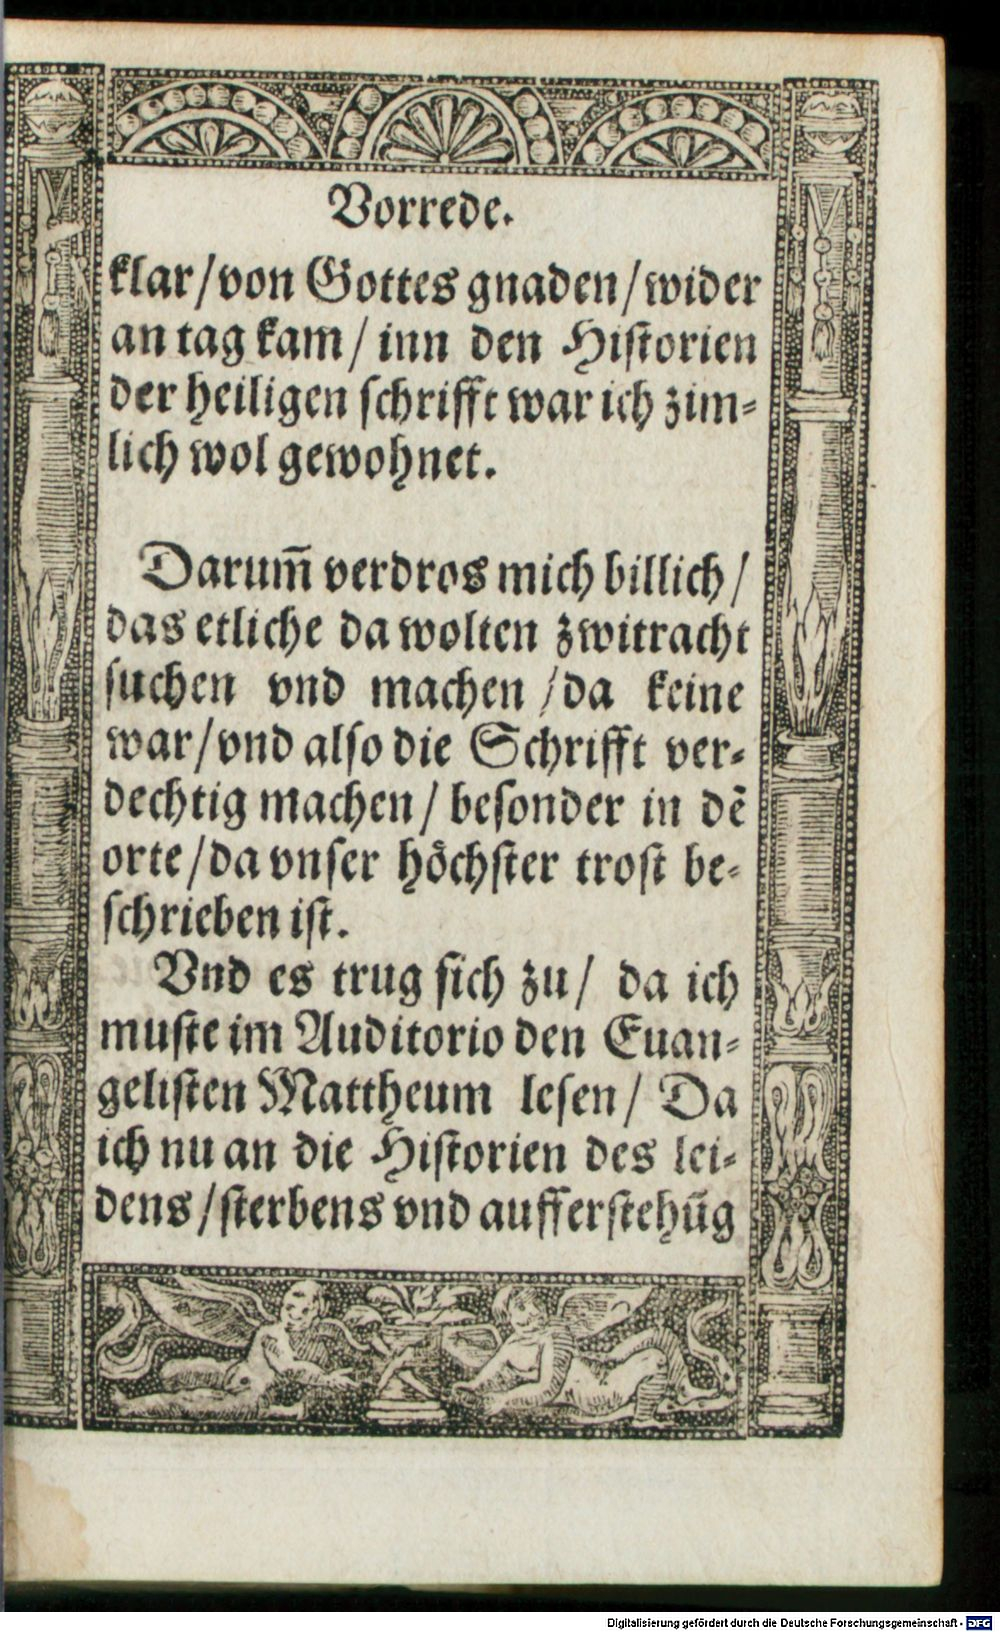 Vorrede.
klar/von Gottes gnaden/wider
an tag kam/ inn den Historien
der heiligen schrifft war ich zim⸗
lich wol gewohnet.
Darum̅ verdros mich billich/
das etliche da wolten zwitracht
suchen vnd machen /da keine
war/vnd also die Schrifft ver⸗
dechtig machen/ besonder in dē
orte/da vnser hoͤchster trost be⸗
schrieben ist.
Vnd es trug sich zu/ da ich
muste im Auditorio den Euan⸗
gelisten Mattheum lesen/ Da
ich nu an die Historien des lei⸗
dens/sterbens vnd aufferstehūg
Digitalisierung gefördert durch die Deutsche Forschungsgemeinschaft - DFG